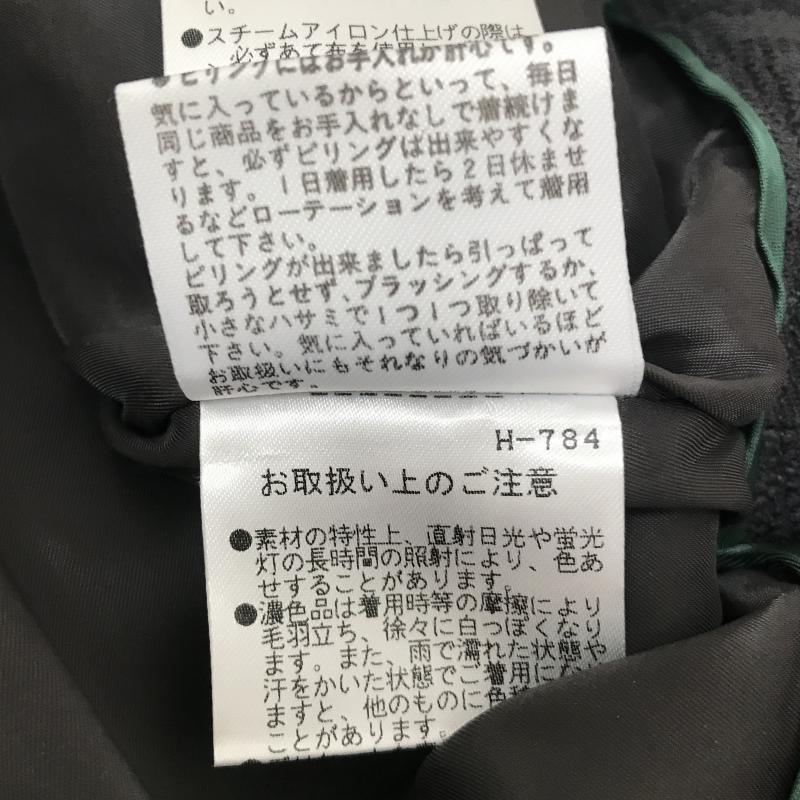 い。
●スチームアイロン仕上げの際は、
必ずあて布を使用
●ピリングにはお手入れが肝心です。
気に入っているからといって、毎日
同じ商品をお手入れなしで着続けま
すと、必ずピリングは出来やすくな
ります。1日着用したら2日休ませ
るなどローテーションを考えて着用
して下さい。
ピリングが出来ましたら引っぱって
取ろうとせず、ブラッシングするか、
小さなハサミで1つ1つ取り除いて
下さい。気に入っていればいるほど
お取扱いにもそれなりの気づかいが
肝心です。
H-784
お取扱い上のご注意
●素材の特性上、直射日光や蛍光
灯の長時間の照射により、色あ
せすることがあります。
●濃色品は着用時等の摩擦により
毛羽立ち、徐々に白っぽくなり
ます。また、雨で濡れた状態や
汗をかいた状態でご着用にな
ますと、他のものに色
ことがあります。